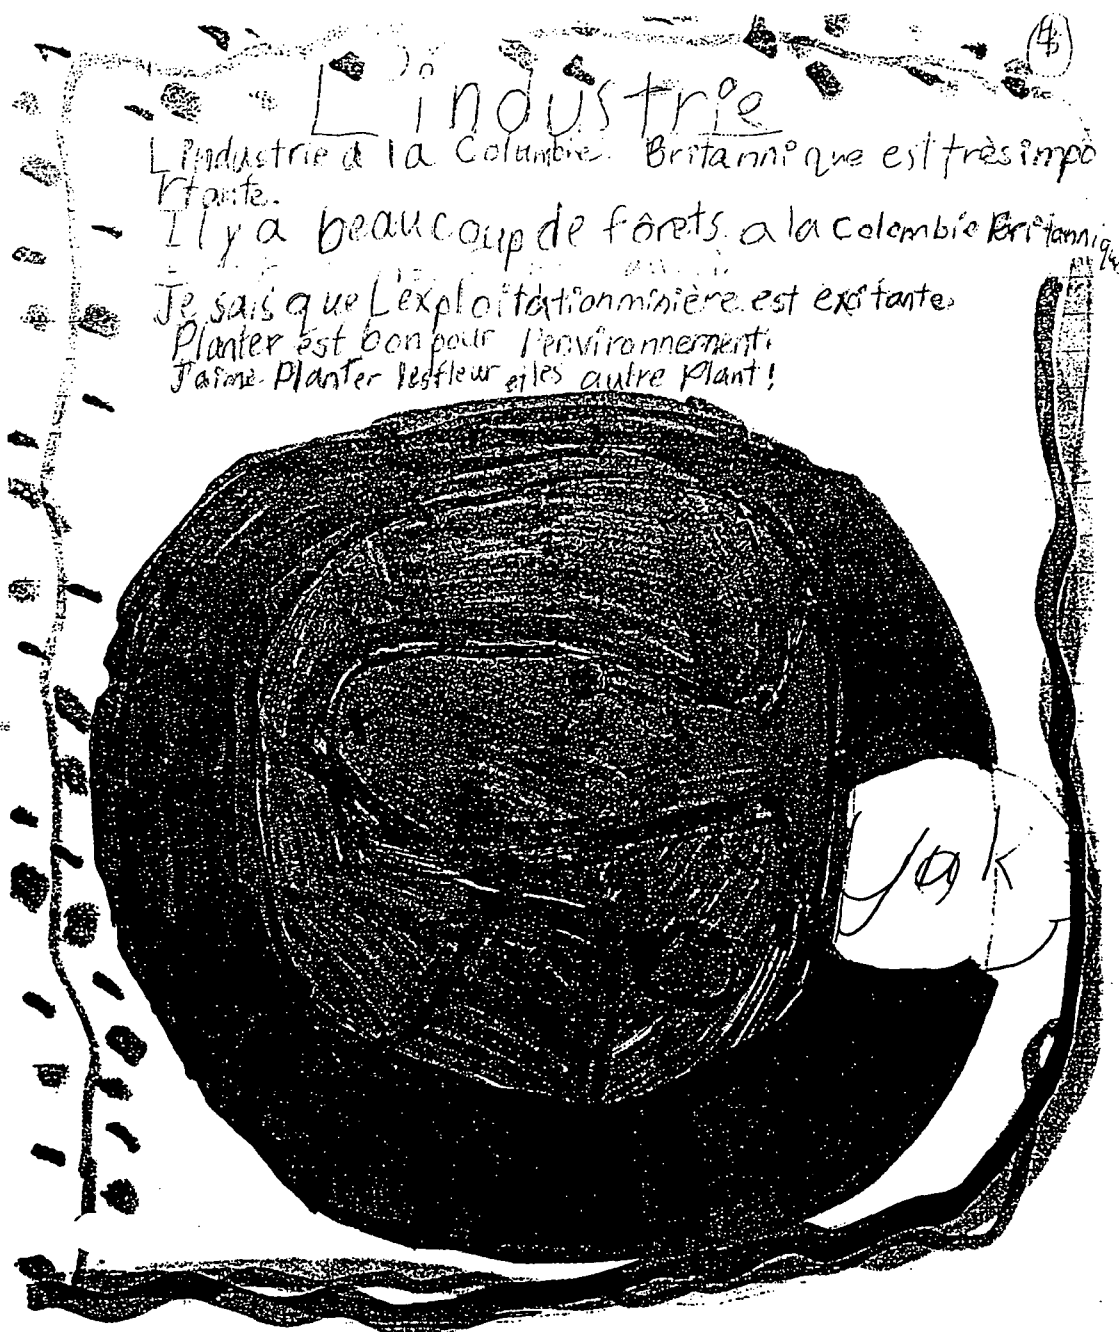 4
L'industrie
L'industrie à la Columbie Britannique est très impo
rtante.
Il y a beaucoup de fôrets a la Colombie Britannique
Je sais que L'exploitationminière est exitante.
Planter est bon pour l'environnement.
J'aime Planter lesfleur et les autre Plant!